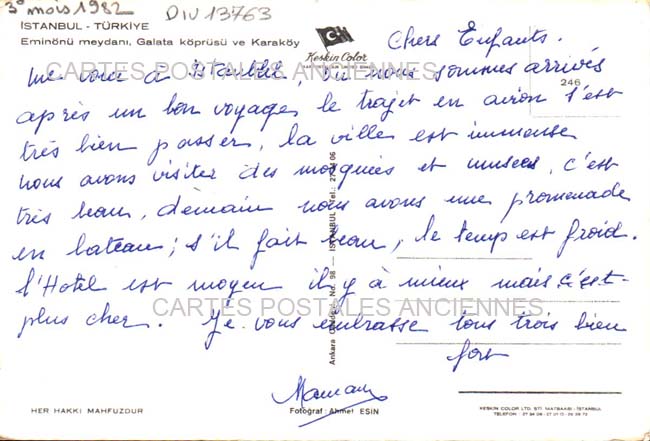 3e mois 1982 DIV 13763
İSTANBUL - TÜRKİYE
Eminönü meydanı, Galata köprüsü ve Karaköy
Keskin Color
246
Chers Enfants.
me voici à Istanbul, où nous sommes arrivés
après un bon voyages le trajet en avion s'est
très bien passer, la ville est immense
nous avons visiter des moquées et musées, c'est
très beau, demain nous avons une promenade
en bateau; s'il fait beau, le temp est froid.
l'Hotel est moyen il y à mieux mais c'est-
plus cher. Je vous embrasse tous trois bien
fort
Maman
CARTES POSTALES ANCIENNES
CARTES POSTALES ANCIENNES
Ankara Caddesi, No. 98 — İSTANBUL (Tel.:
HER HAKKI MAHFUZDUR
Fotoğraf: Ahmet ESİN
KESKIN COLOR LTD. ŞTİ. MATBAASI - İSTANBUL